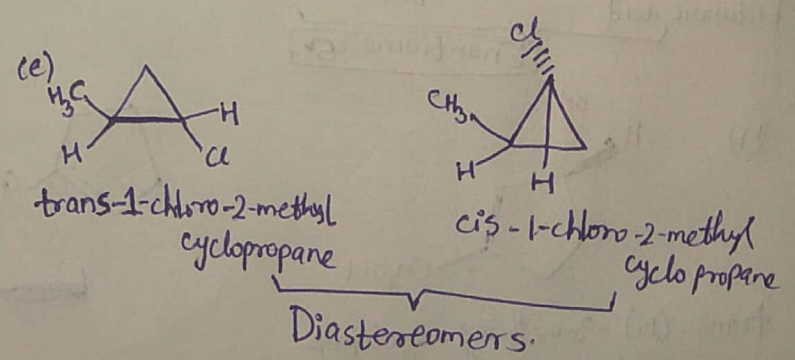 (e)
H₃C
H
H
Cl
trans-1-chloro-2-methyl
cyclopropane
Cl
CH₃
H
H
cis-1-chloro-2-methyl
cyclopropane
Diastereomers.